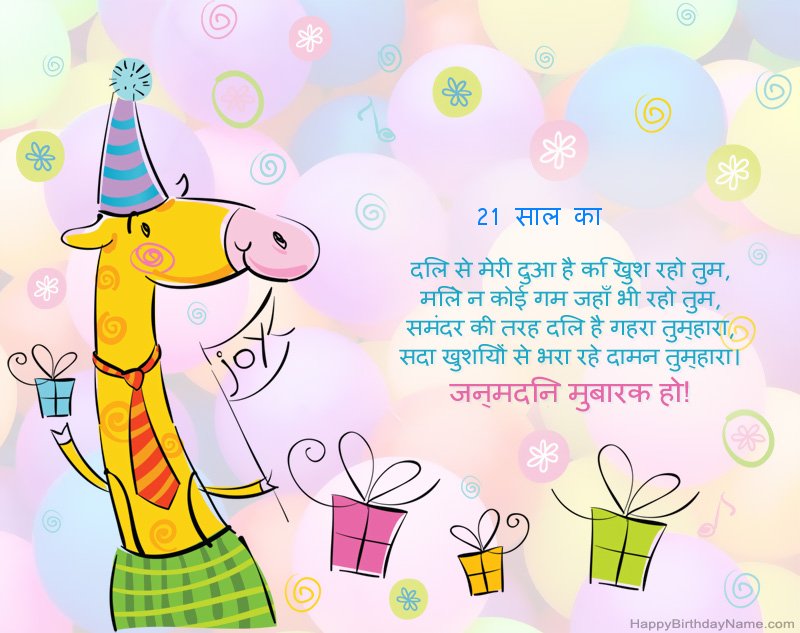 21 साल का
दलि से मेरी दुआ है कि खुश रहो तुम,
मलिे न कोई गम जहाँ भी रहो तुम,
समंदर की तरह दलि है गहरा तुम्हारा,
सदा खुशयिों से भरा रहे दामन तुम्हारा।
जन्मदनि मुबारक हो!
joy
HappyBirthdayName.com